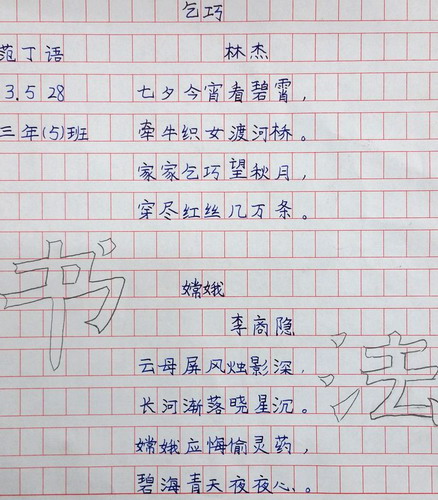 乞巧
范丁语 林杰
3.5 28 七夕今宵看碧霄,
三年(5)班 牵牛织女渡河桥。
家家乞巧望秋月,
穿尽红丝几万条。
书
嫦娥
李商隐
法
云母屏风烛影深,
长河渐落晓星沉。
嫦娥应悔偷灵药,
碧海青天夜夜心。